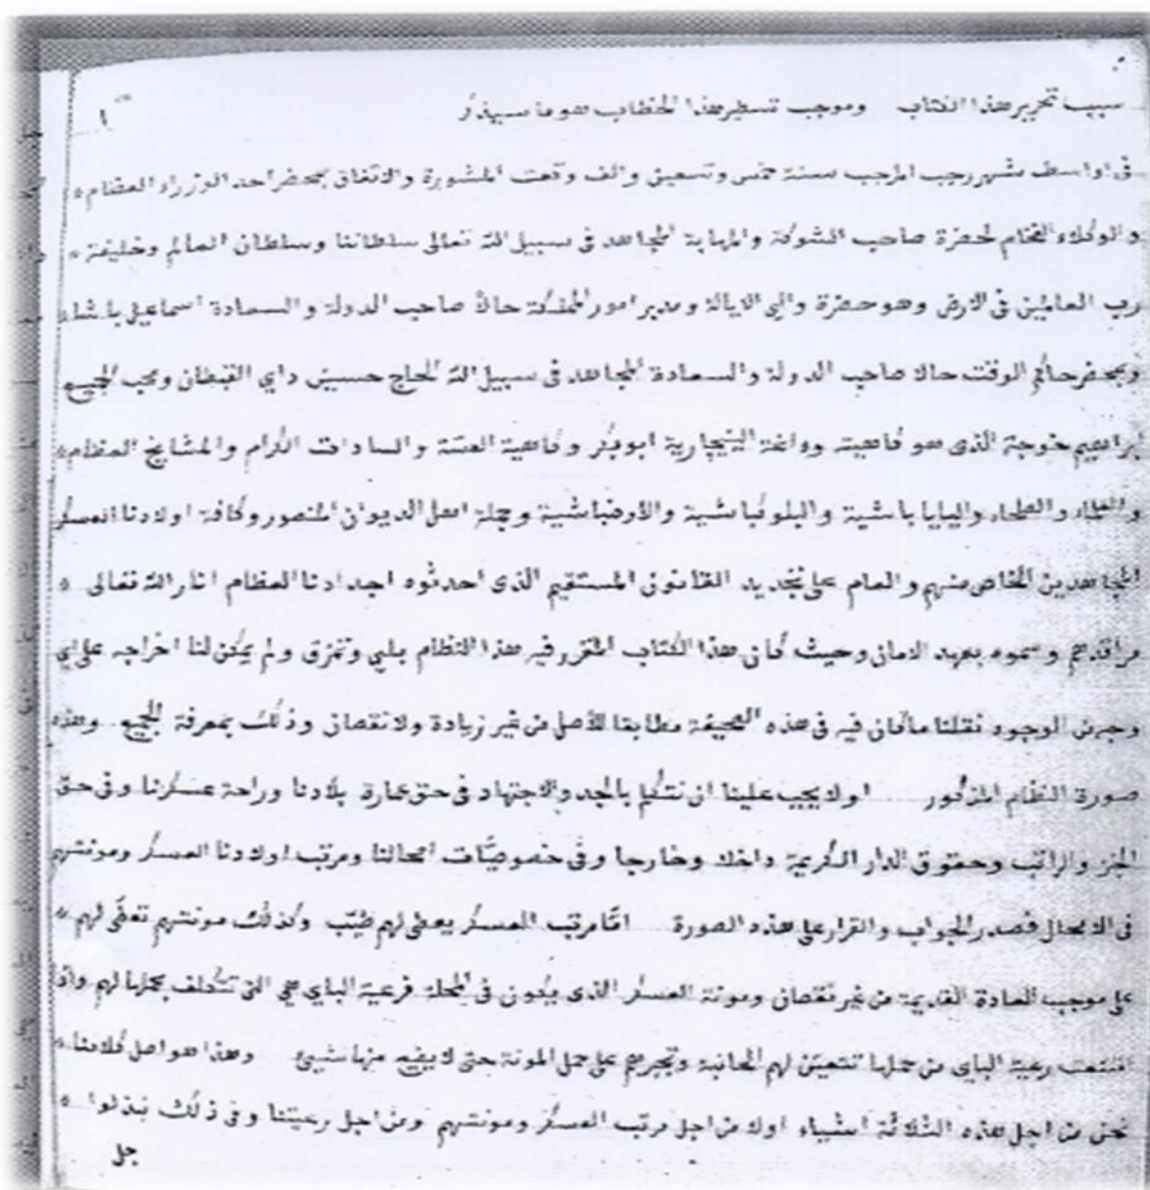 سبب تحرير هذا الكتاب وموجب تسطير هذا الخطاب هو ما سيذكر
١
فى اواسط شهر رجب المرجب سنة خمس وتسعين والف وقعت المشورة والاتفاق بمحضر احد الوزراء العظام
والوكلاء الفخام لحضرة صاحب الشوكة والمهابة المجاهد فى سبيل الله تعالى سلطاننا وسلطان العالم وخليفة
رب العالمين فى الارض وهو حضرة والى الايالة ومدبر امور المملكة حالا صاحب الدولة والسعادة اسماعيل باشا
وبمحضر حاكم الوقت حالا صاحب الدولة والسعادة المجاهد فى سبيل الله الحاج حسين داي القبطان ومحب الجميع
ابراهيم خوجة الذى هو كاهيته وداغة الينجارية ابو بكر وكاهية العسة والسادات الكرام والمشايخ العظام
والعلماء والصلحاء واليايا باشية والبلوكباشية والأوضباشية وجملة اهل الديوان المنصور وكافة اولادنا العسكر
المجاهدين الخاص منهم والعام على تجديد القانون المستقيم الذى احدثوه اجدادنا العظام انار الله تعالى
مراقدهم وسموه بعهد الامان وحيث كان هذا الكتاب المقرر فيه هذا النظام بلي وتمزق ولم يمكن لنا اخراجه على اي
وجه من الوجوه نقلنا ما كان فيه فى هذه الصحيفة مطابقا للأصل من غير زيادة ولا نقصان وذلك بمعرفة الجميع وهذه
صورة النظام المذكور اولا يجب علينا ان نتكلم بالجد والاجتهاد فى حق عمارة بلادنا وراحة عسكرنا وفى حق
الخبز والراتب وحقوق الدار الكريمة داخلا وخارجا وفى خصوصيات امحالنا ومرتب اولادنا العسكر ومونتهم
فى الامحال فصدر الجواب والقرار على هذه الصورة امّا مرتب العسكر يعطى لهم طيّب وكذلك مونتهم تعطى لهم
على موجب العادة القديمة من غير نقصان ومونة العسكر الذى يكون فى المحلة فرعية الباي هي التى تتكلف بحملها لهم واذا
امتنعت رعية الباي من حملها تتعين لهم الحانبة وتجبرهم على حمل المونة حتى لا يضيع منها شيئ وهذا هو اصل كلامنا
نحن من اجل هذه الثلاثة اشياء اولا من اجل مرتب العسكر ومونتهم ومن اجل رعيتنا وفى ذلك نبذلوا
جل